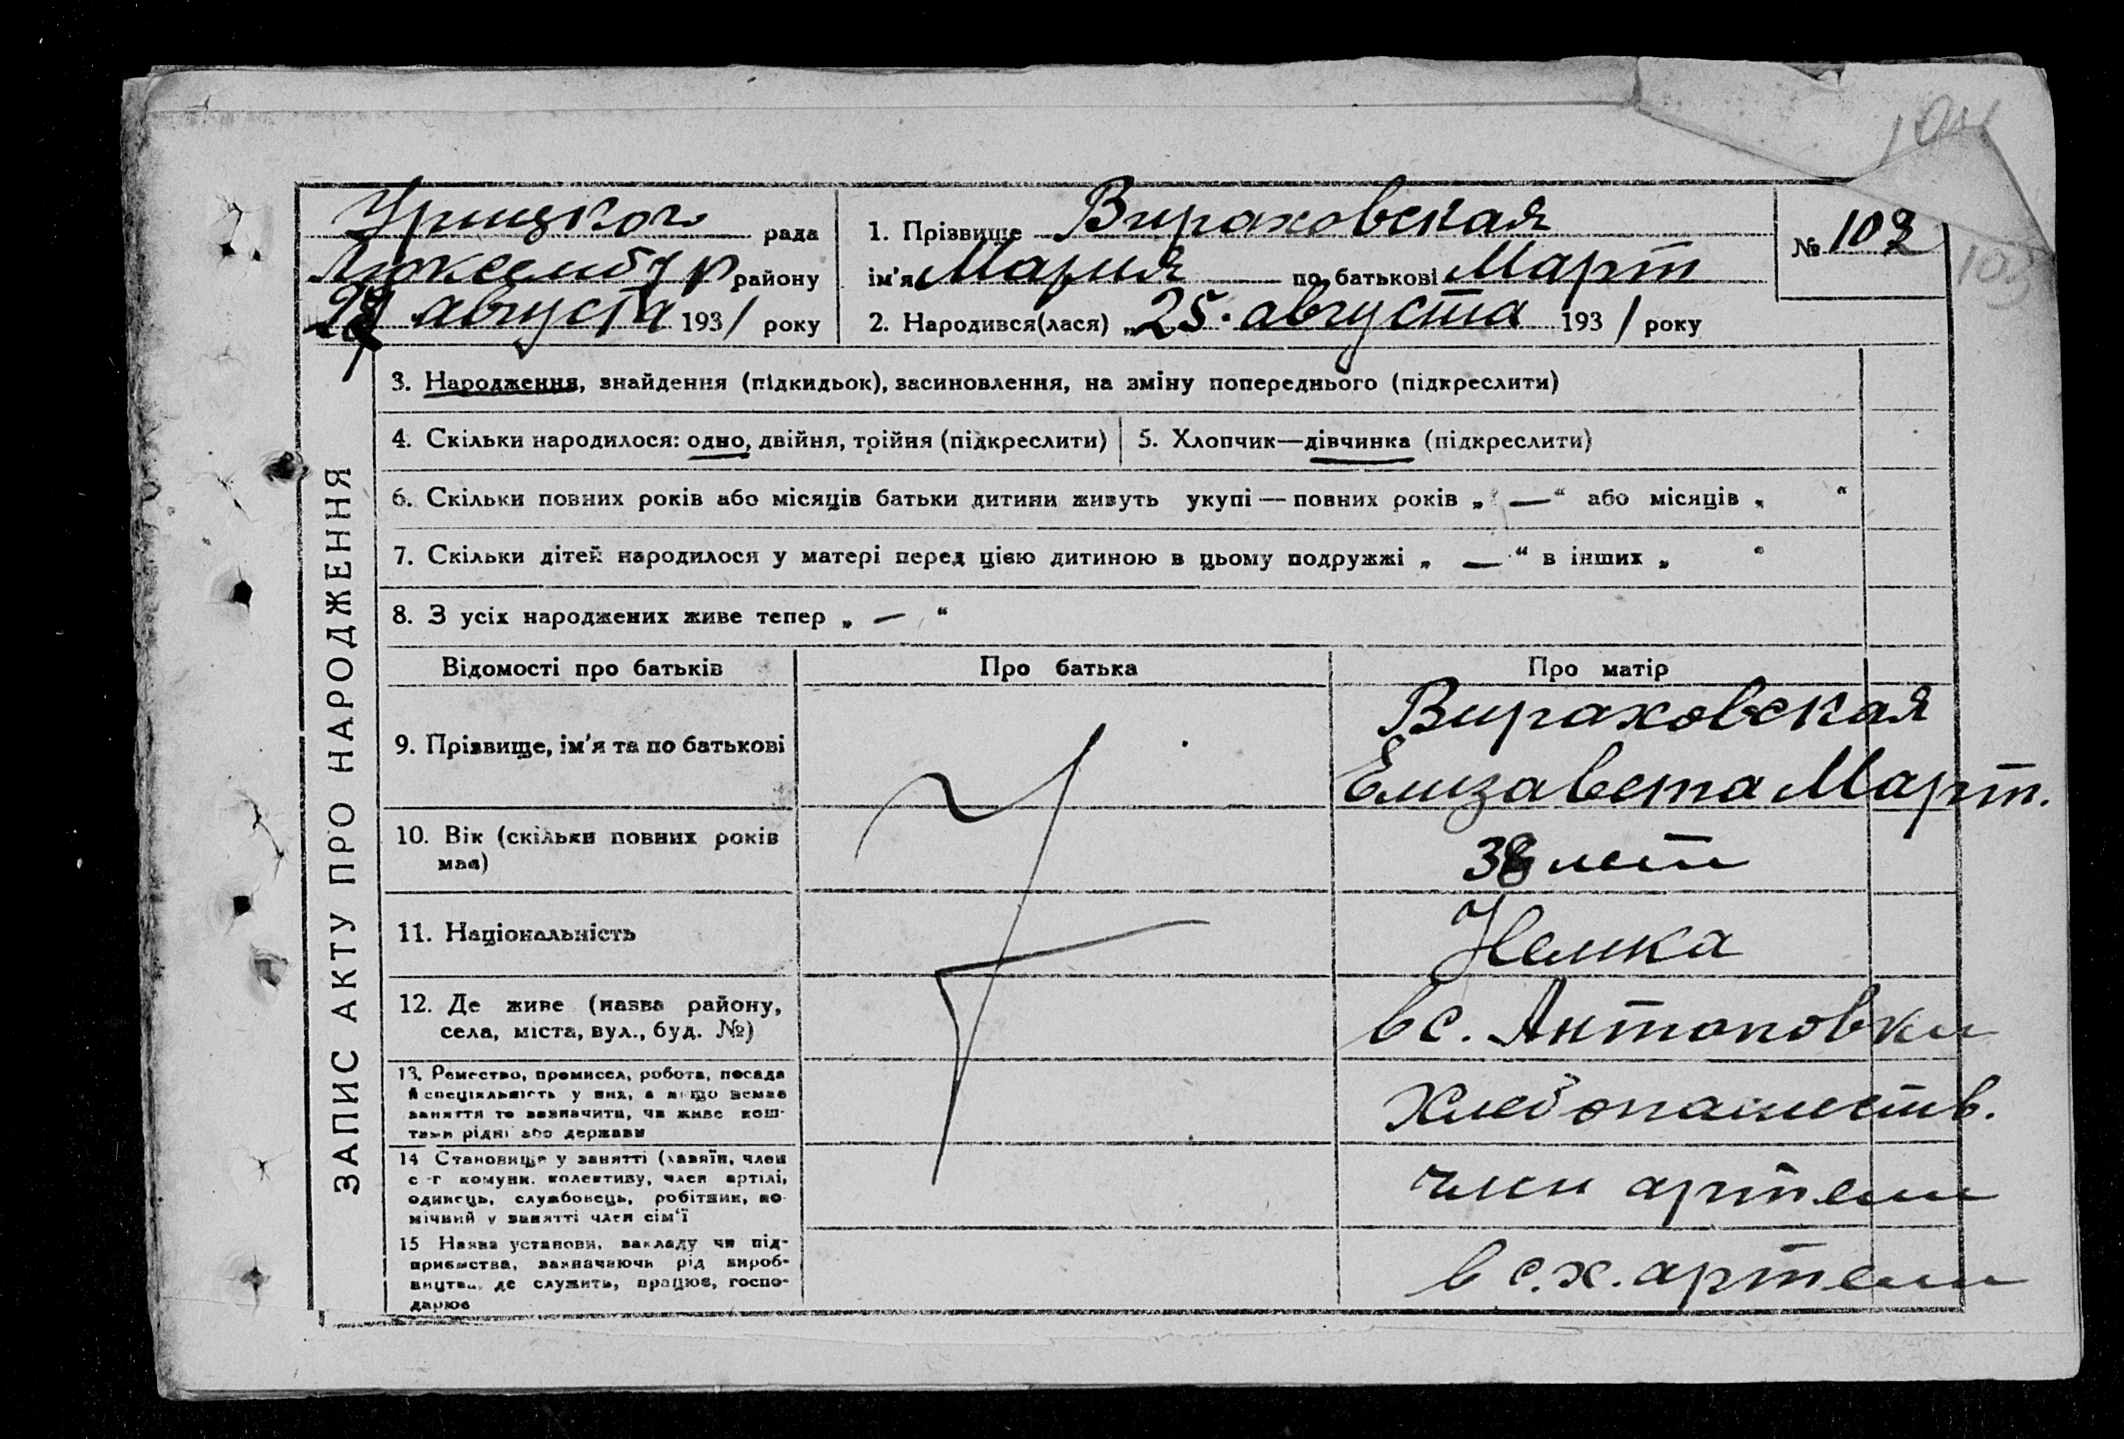 104
Урицкого рада
Люксембур району
августа 1931 року
1. Прізвище Вираховская
ім'я Мария по батькові Март
2. Народився(лася) „25. августа 1931 року
№ 103
103
ЗАПИС АКТУ ПРО НАРОДЖЕННЯ
3. Народження, знайдення (підкидьок), засиновлення, на зміну попереднього (підкреслити)
4. Скільки народилося: одно, двійня, трійня (підкреслити)
5. Хлопчик—дівчинка (підкреслити)
6. Скільки повних років або місяців батьки дитини живуть укупі — повних років „ — “ або місяців „ “
7. Скільки дітей народилося у матері перед цією дитиною в цьому подружжі „ — “ в інших „ “
8. З усіх народжених живе тепер „ — “
Відомості про батьків
Про батька
Про матір
9. Прізвище, ім'я та по батькові
Вираховская
Елизавета Март.
10. Вік (скільки повних років
має)
38 лет
11. Національність
Немка
12. Де живе (назва району,
села, міста, вул., буд. №)
в с. Антоновки
13. Ремество, промисел, робота, посада
й спеціяльність у них, а якщо немає
заняття то зазначити, чи живе кош-
тами рідні або держави
Хлебопашеств.
14 Становище у занятті (хазяїн, член
с-г комуни, колективу, член артілі,
одинець, службовець, робітник, по-
мічний у занятті член сім'ї
член артели
15 Назва установи, закладу чи під-
приємства, зазначаючи рід вироб-
ництва, де служить, працює, госпо-
дарює
в с.х. артели